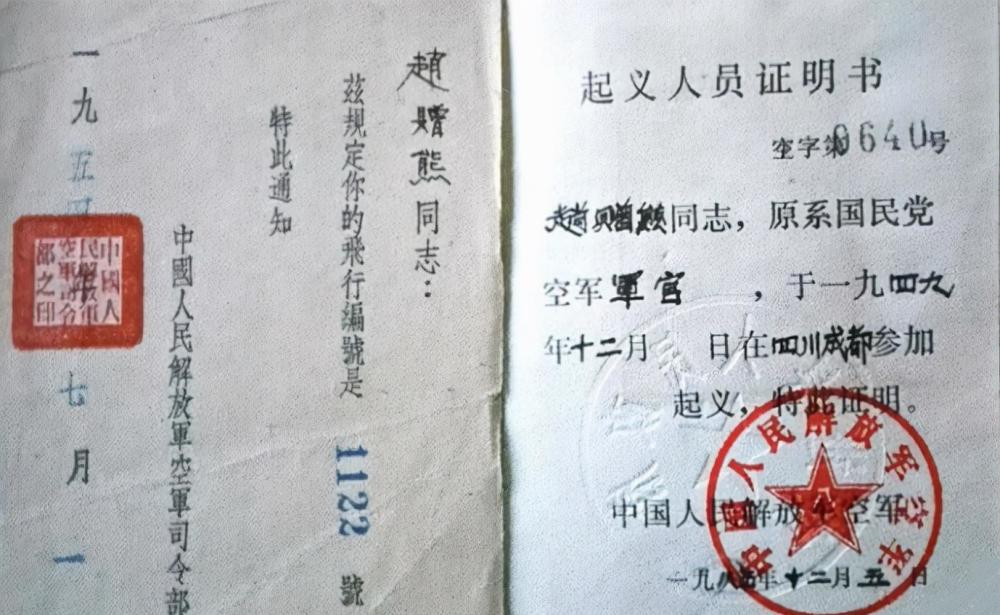 趙矰熊同志：
茲規定你的飛行編號是 1122 號
特此通知
中國人民解放軍空軍司令部
一九五四年七月一
中國人民解放軍空軍司令部之印
起义人员证明书
空字第0640号
同志，原系国民党
空军軍官，于一九四九
年十二月 日在四川成都参加
起义，特此证明。
中国人民解放军空军
一九八 年十二月五日
中国人民解放军空军
八一